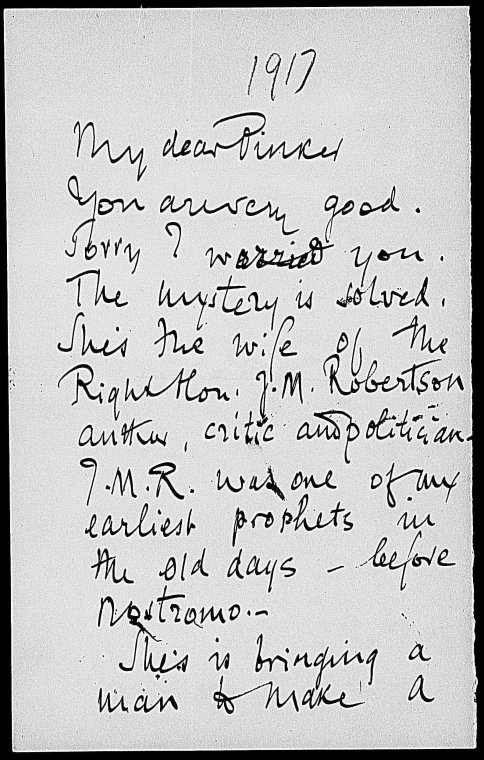 1917
My dear Pinker
You are very good.
Sorry I worried you.
The mystery is solved.
She's the wife of the
Right Hon. J.M. Robertson
author, critic and politician.
J.M.R. was one of my
earliest prophets in
the old days – before
Nostromo.–
She's is bringing a
man to make a